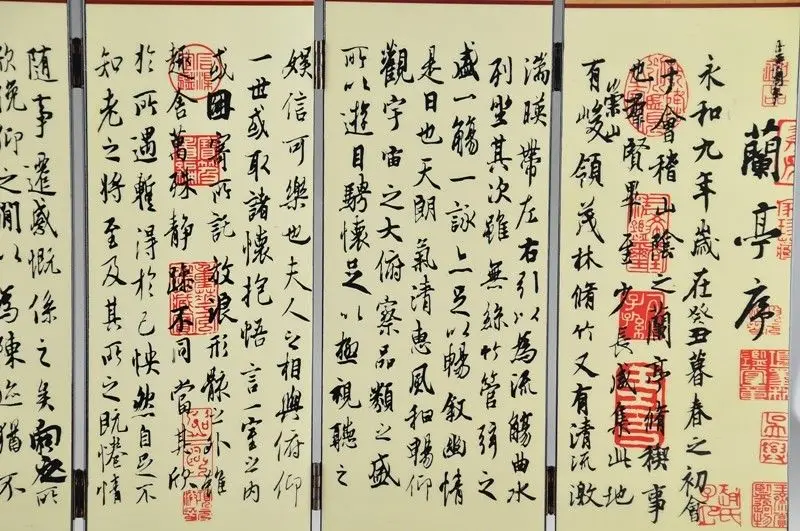 蘭亭序
永和九年歲在癸丑暮春之初會
于會稽山陰之蘭亭脩稧事
也羣賢畢至少長咸集此地
有崇山峻領茂林脩竹又有清流激
湍暎帶左右引以為流觴曲水
列坐其次雖無絲竹管弦之
盛一觴一詠亦足以暢敘幽情
是日也天朗氣清惠風和暢仰
觀宇宙之大俯察品類之盛
所以遊目騁懷足以極視聽之
娛信可樂也夫人之相與俯仰
一世或取諸懷抱悟言一室之內
或因寄所託放浪形骸之外雖
趣舍萬殊静躁不同當其欣
於所遇暫得於己怏然自足不
知老之將至及其所之既惓情
隨事遷感慨係之矣向之所
欣俛仰之閒以為陳迹猶不